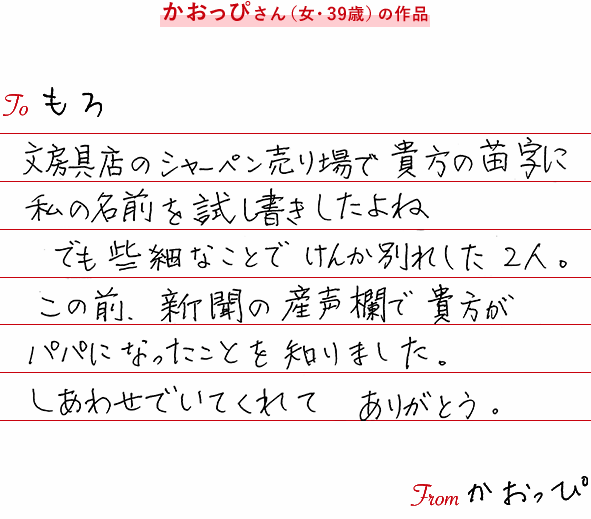 かおっぴさん（女・39歳）の作品
To もろ
文房具店のシャーペン売り場で貴方の苗字に
私の名前を試し書きしたよね
でも些細なことでけんか別れした2人。
この前、新聞の産声欄で貴方が
パパになったことを知りました。
しあわせでいてくれて ありがとう。
From かおっぴ